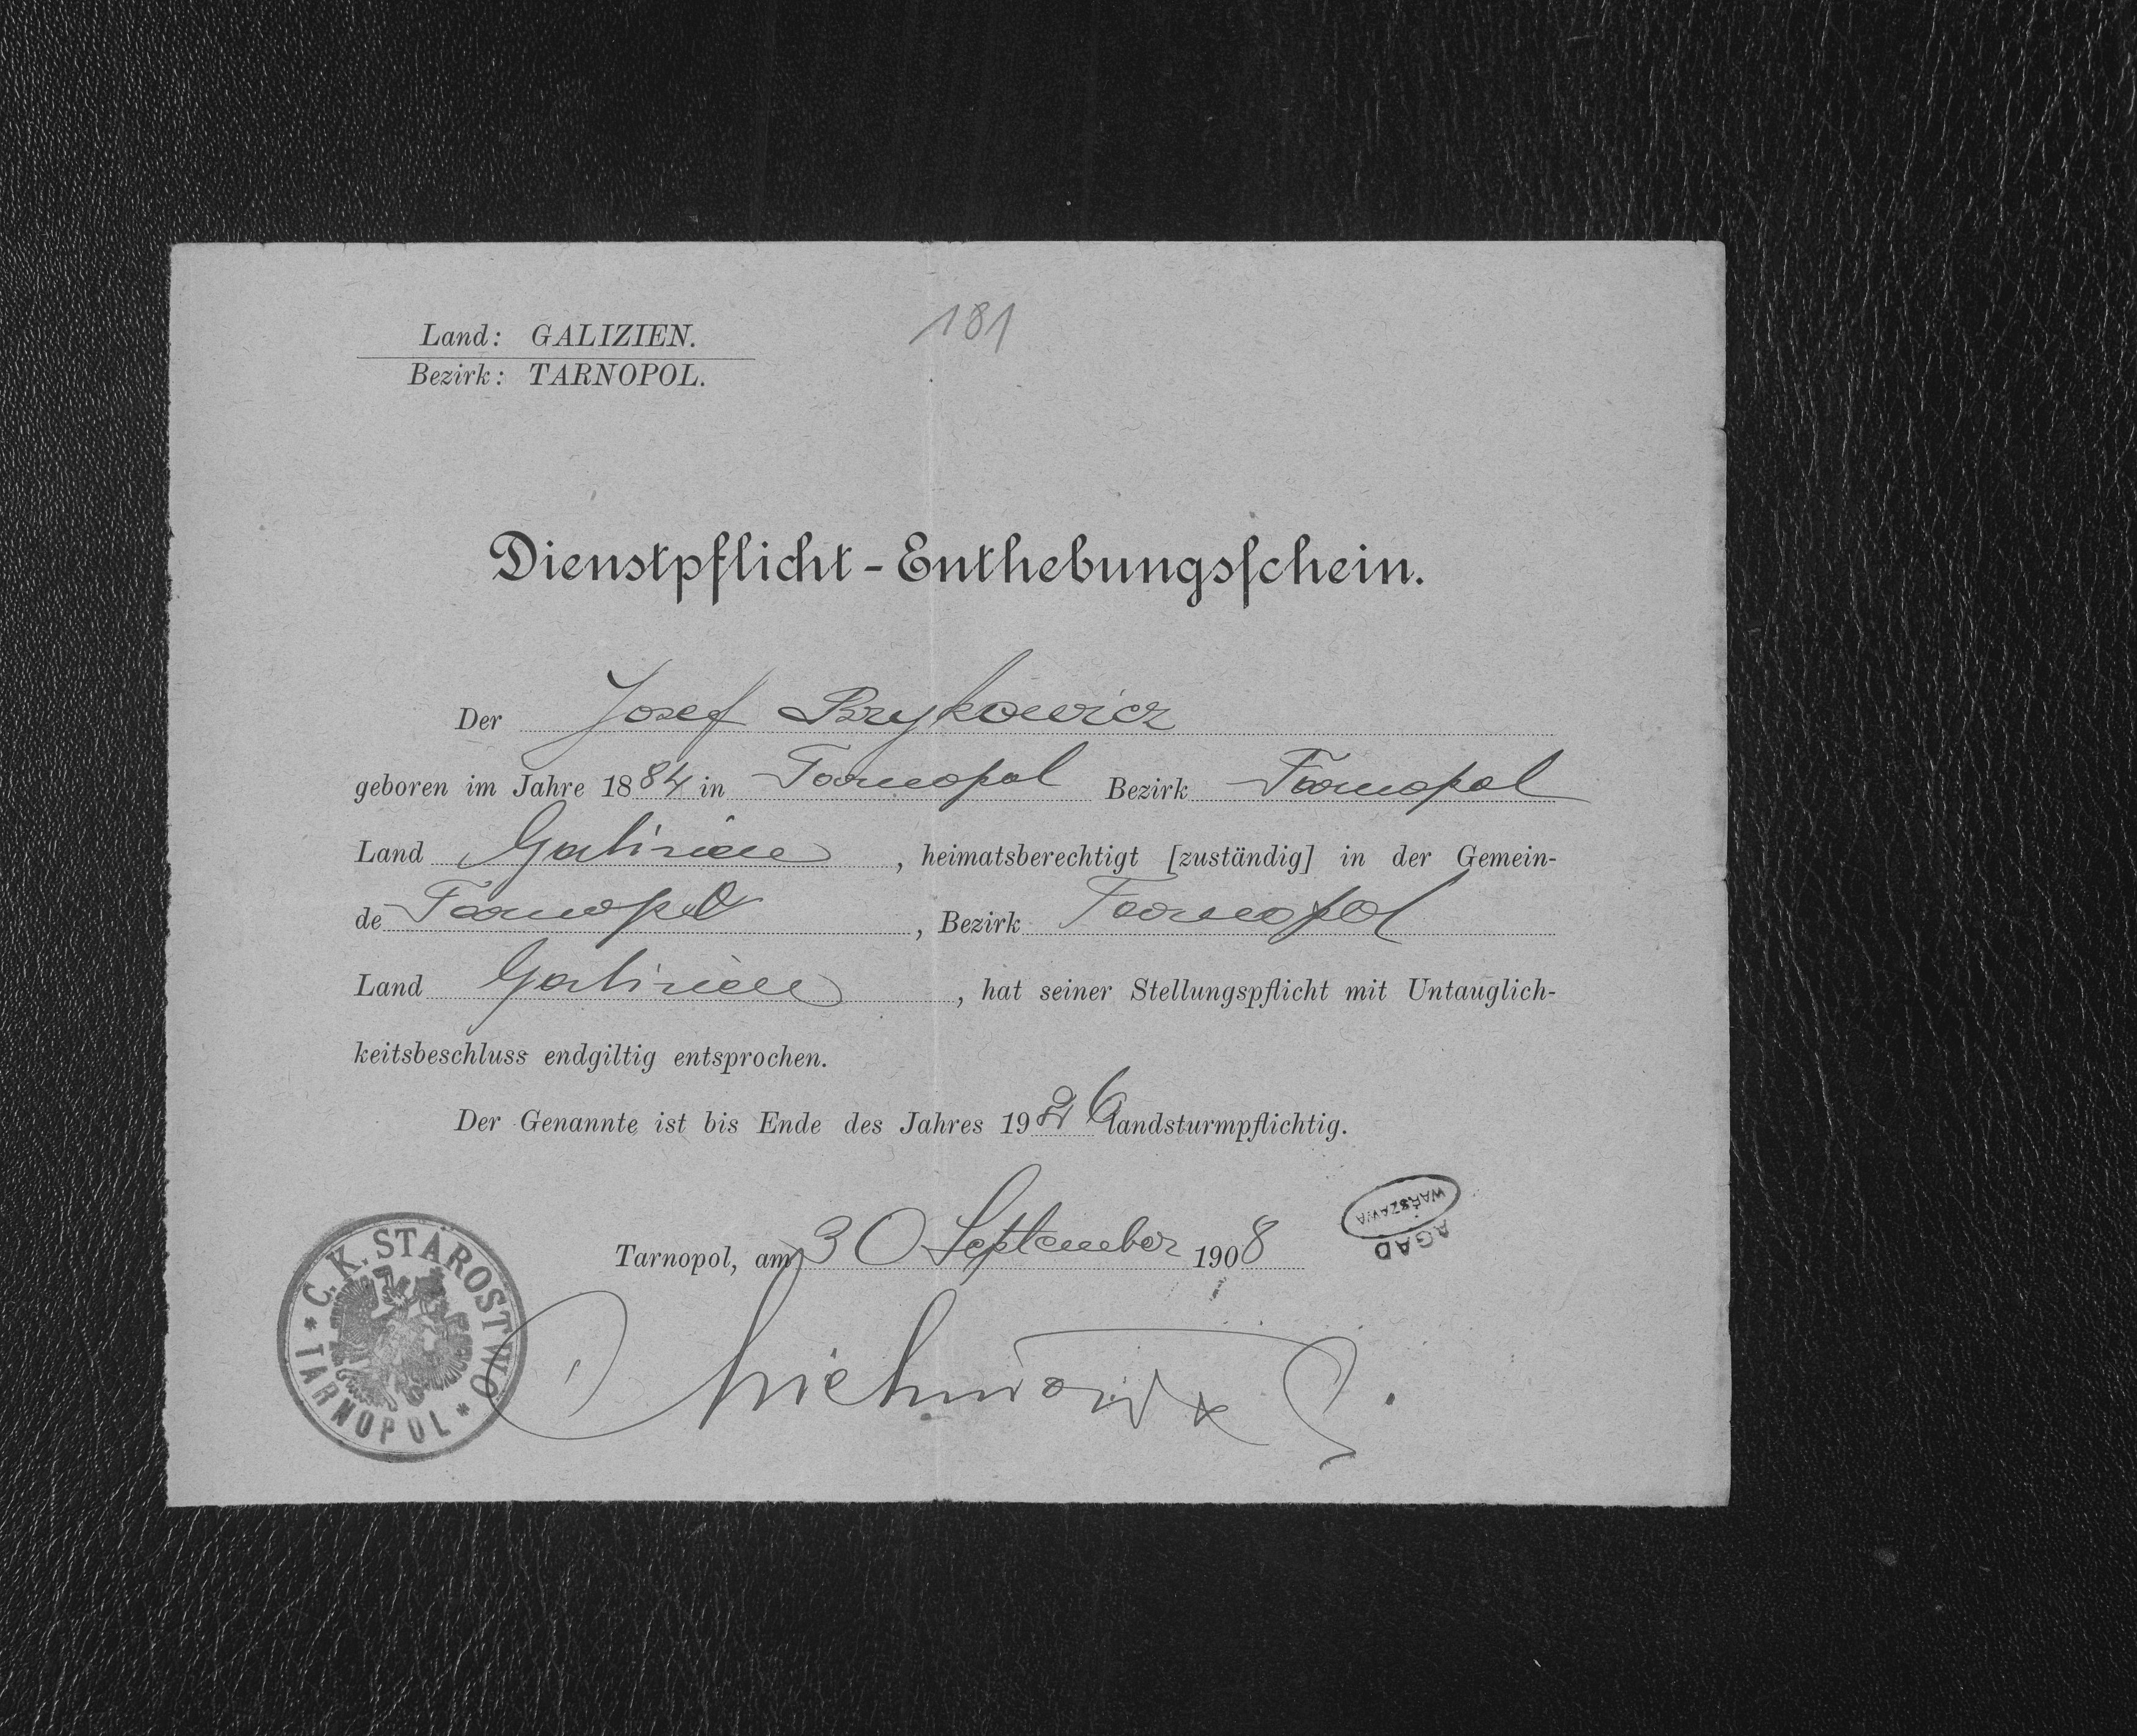 181
Land: GALIZIEN.
Bezirk: TARNOPOL.
Dienstpflicht-Enthebungsschein.
Der Josef Brykowicz
geboren im Jahre 1884 in Tarnopol Bezirk Tarnopol
Land Galizien, heimatsberechtigt [zuständig] in der Gemein-
de Tarnopol, Bezirk Tarnopol
Land Galizien, hat seiner Stellungspflicht mit Untauglich-
keitsbeschluss endgiltig entsprochen.
Der Genannte ist bis Ende des Jahres 1926 landsturmpflichtig.
Tarnopol, am 30 September 1908
AGAD
WARSZAWA
C. K. STAROSTWO
* TARNOPOL *